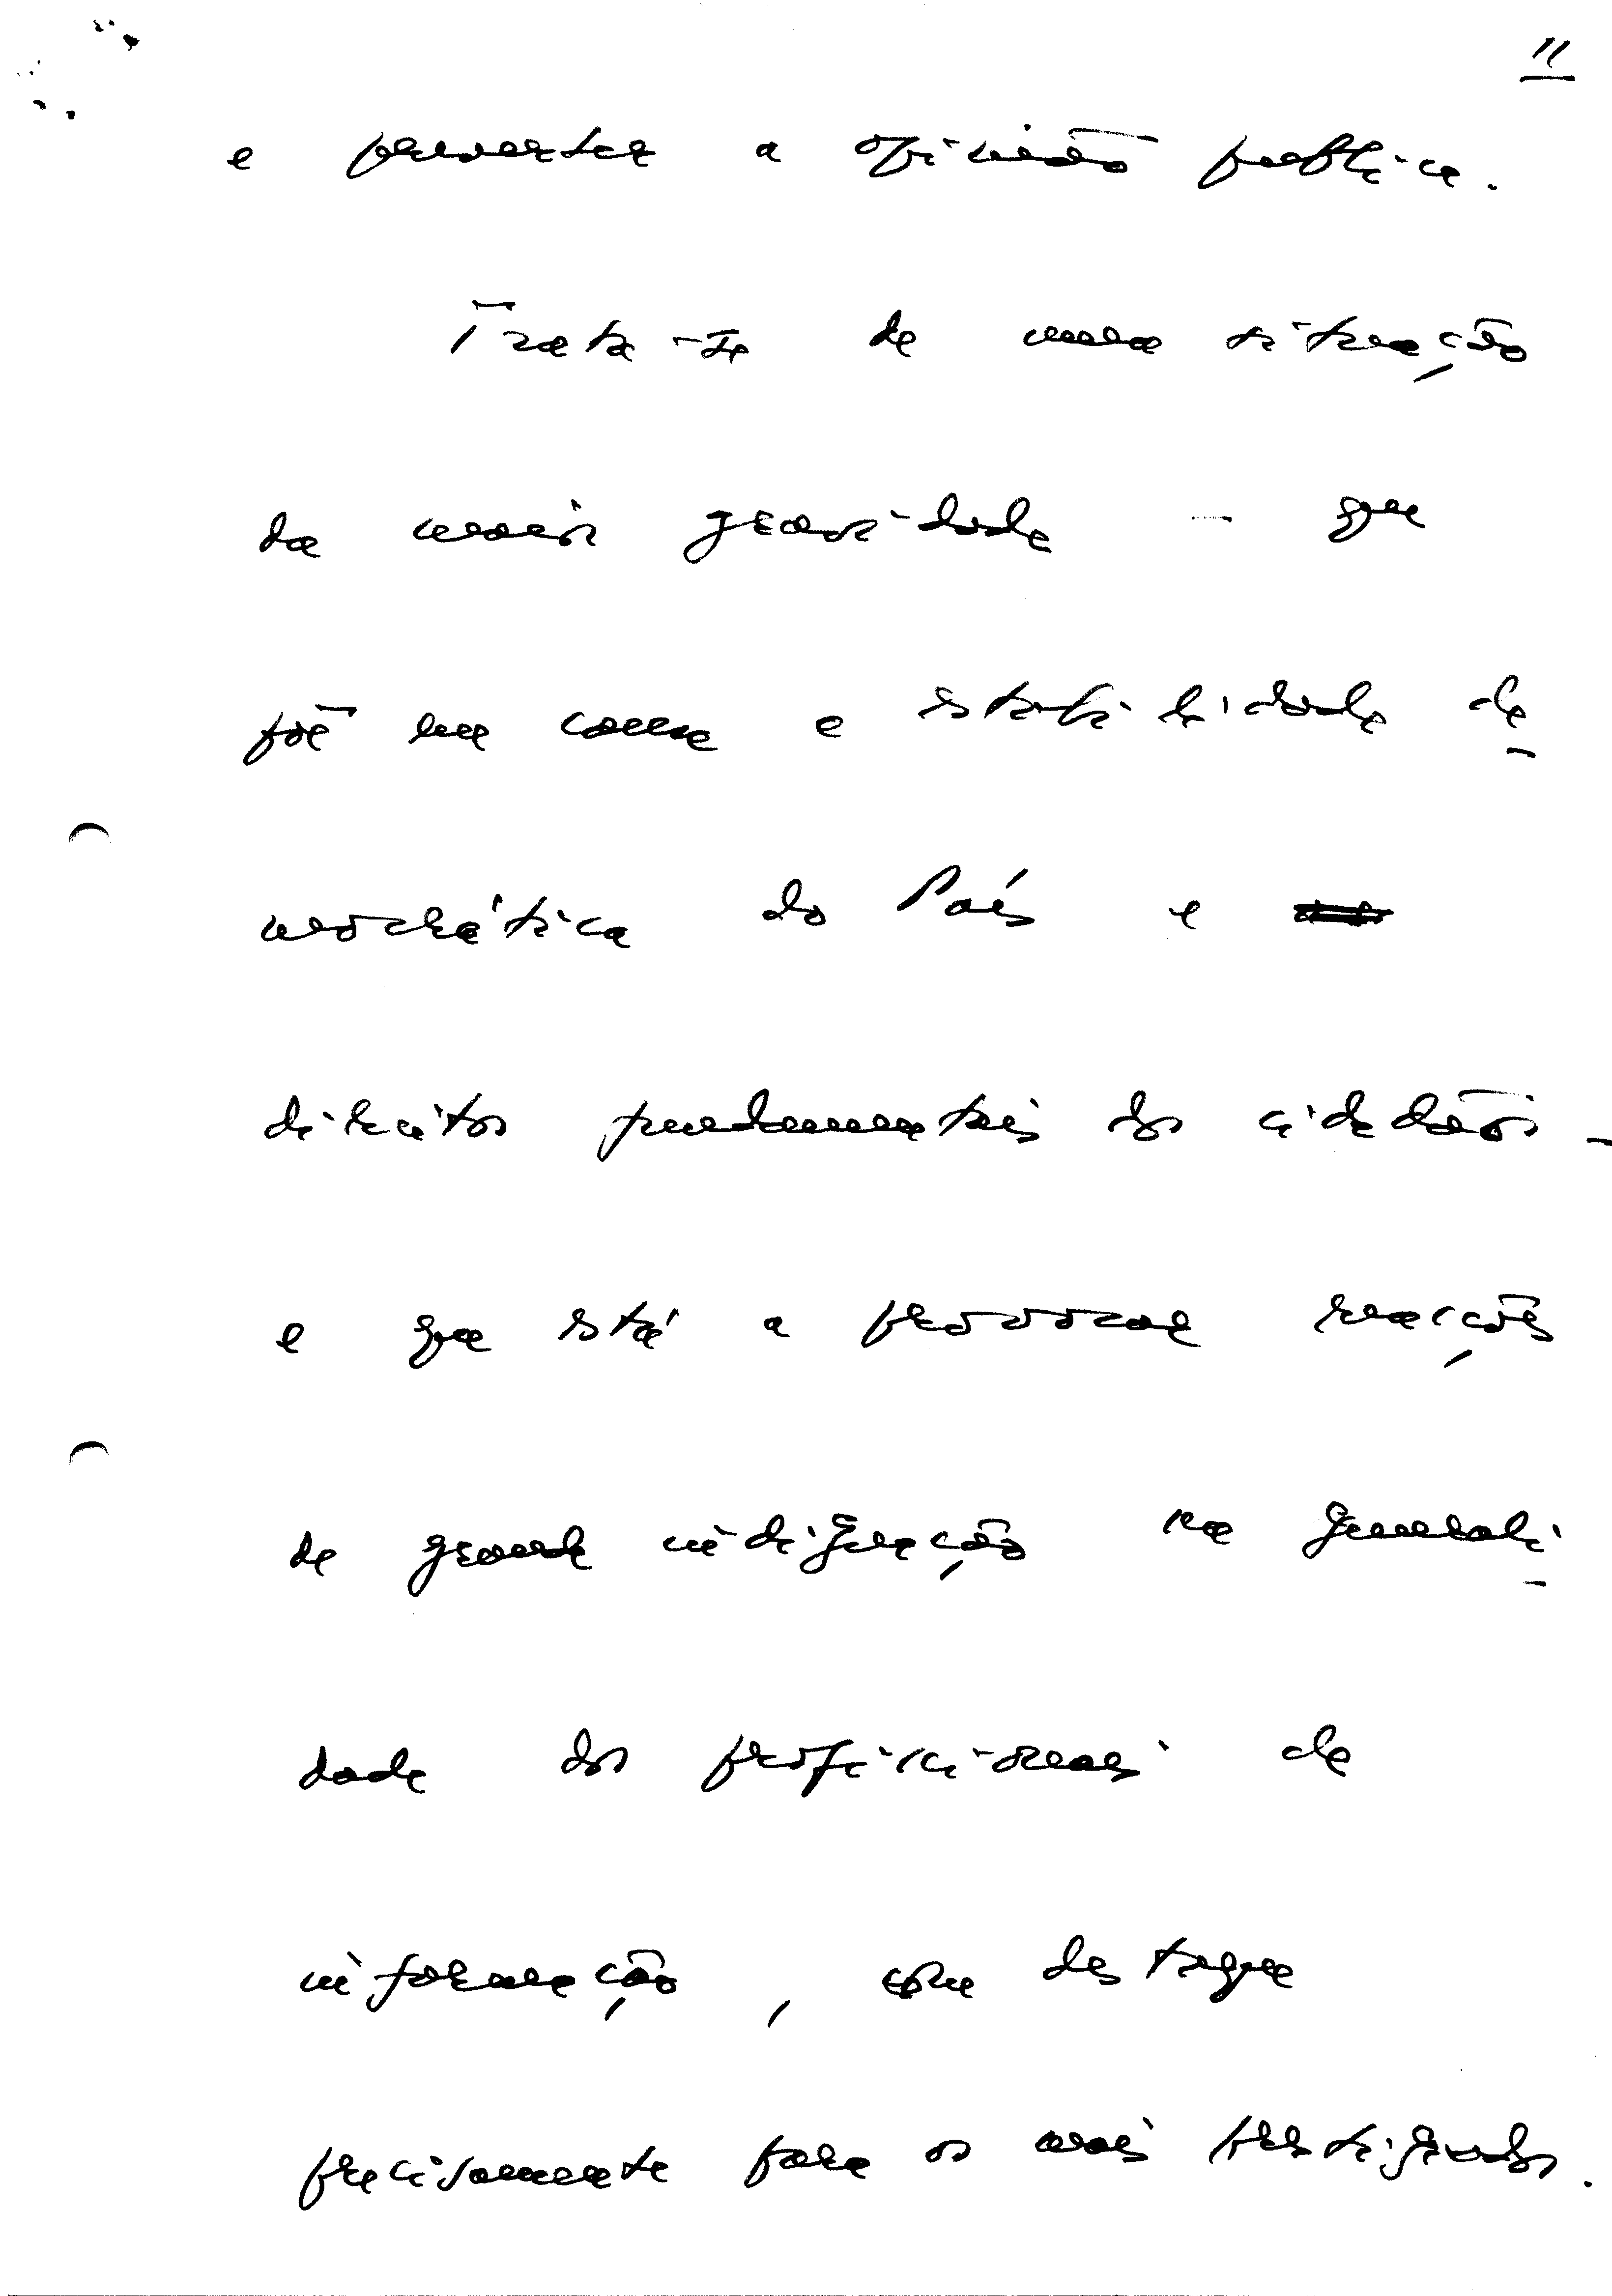 11
e perverter a opinião pública.
Trata-se de uma situação
da maior gravidade - que
põe em causa e estabilidade de
mocrática do País e
direitos fundamentais dos cidadãos -
e que está a provocar reacções
de grande indignação na generali
dade dos profissionais de
informação, com destaque
precisamente para os mais prestigiados.